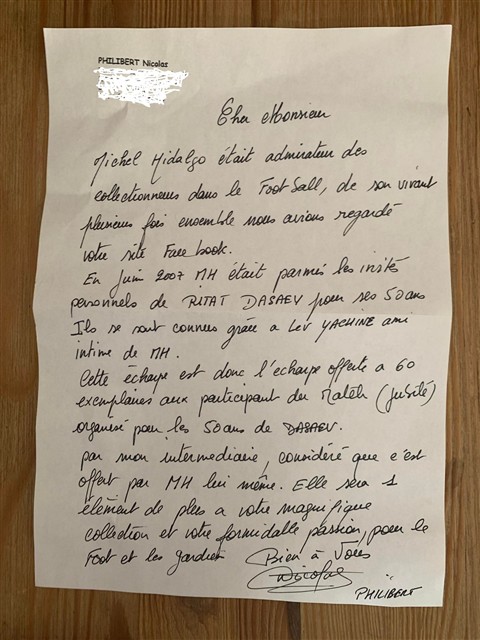 PHILIBERT Nicolas
Cher Monsieur
Michel Hidalgo était admirateur des
collectionneurs dans le Foot Ball, de son vivant
plusieurs fois ensemble nous avions regardé
votre site Face book.
En Juin 2007 MH était parmis les invités
personnels de RITAT DASAEV pour ses 50 ans
Ils se sont connus grâce a Lev YACHINE ami
intime de MH.
Cette écharpe est donc l'écharpe offerte a 60
exemplaires aux participant du Match (Jubilé)
organisé pour les 50 ans de DASAEV.
par mon intermediaire, considéré que c'est
offert par MH lui même. Elle sera 1
élèment de plus a votre magnifique
collection et votre formidable passion, pour le
Foot et les gardien Bien à Vous
Nicolas
PHILIBERT